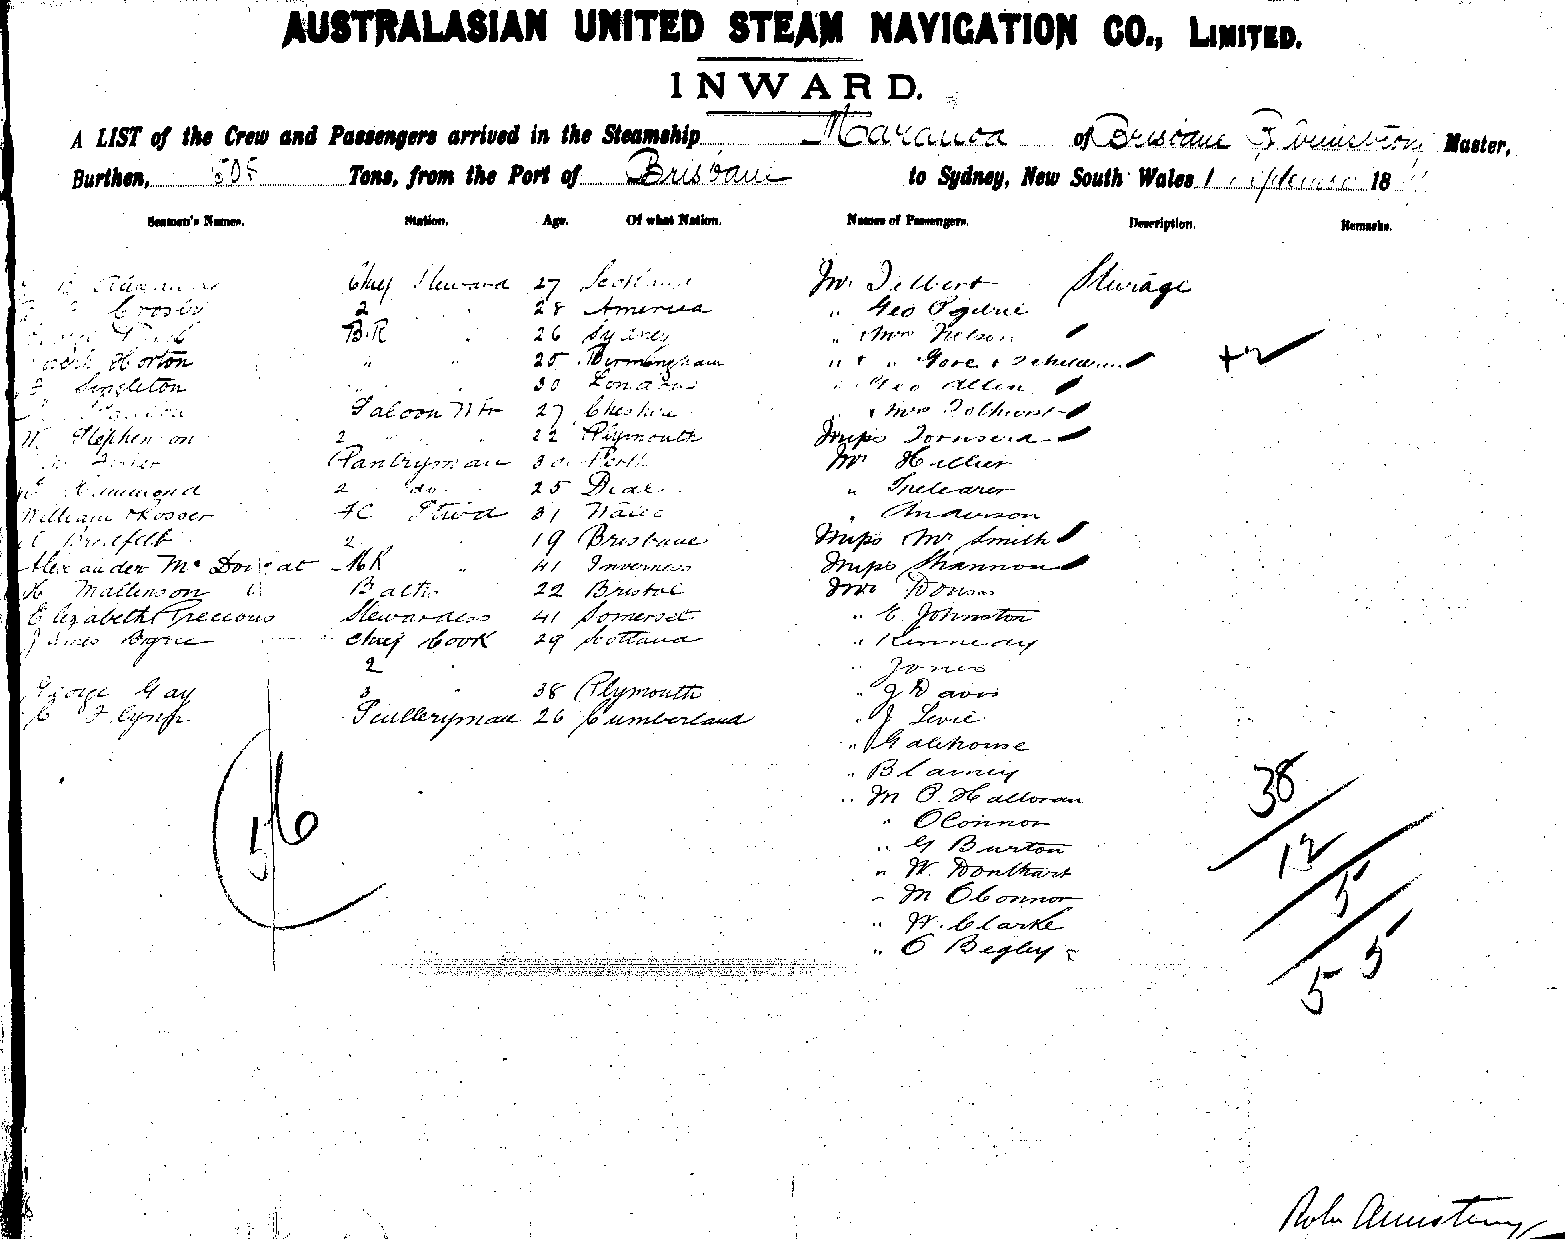 AUSTRALASIAN UNITED STEAM NAVIGATION CO., LIMITED.
INWARD.
A LIST of the Crew and Passengers arrived in the Steamship Maranoa of Brisbane Armstrong Master,
Burthen, 505 Tons, from the Port of Brisbane to Sydney, New South Wales 1 September 18
Seamen's Names. Station. Age. Of what Nation. Names of Passengers. Description. Remarks.
Chief Steward 27 Scotland Mr Tilbert Steerage
Crosby 2 " 28 America " Geo Ogilvie
B.R " 26 Sydney " Mrs Nelson
Horton " " 25 Birmingham " & " Gore & 2 children +2
Singleton " " 30 London " Geo Allen
Saloon Wtr 27 Cheshire " & Mrs Tolhurst
W. Stephenson 2 " " 22 Plymouth Miss Townsend
Pantryman 30 Perth Mr Hillier
Hammond 2 do 25 Deal " Trelearer
William Rosser FC Stwd 31 Wales " Anderson
Bradfelt 2 " 19 Brisbane Miss Mr Smith
Alexander Mc Dougat MR " 41 Inverness Miss Shannon
H Mallinson Baths 22 Bristol Mr
Elizabeth Precious Stewardess 41 Somerset " E. Johnston
James Byrne Chief Cook 29 Scotland " Kennedy
2 " Jones
George Gay 3 " 38 Plymouth " J Davis
C Flynn Sculleryman 26 Cumberland " J Levie
" Galehouse
" Blamey
" M O. Halloran
" OConnor
" G Burton
" W. Donlhart
" M OConnor
" W. Clarke
" C Begley
56
38
12
5
55
Robt Armstrong